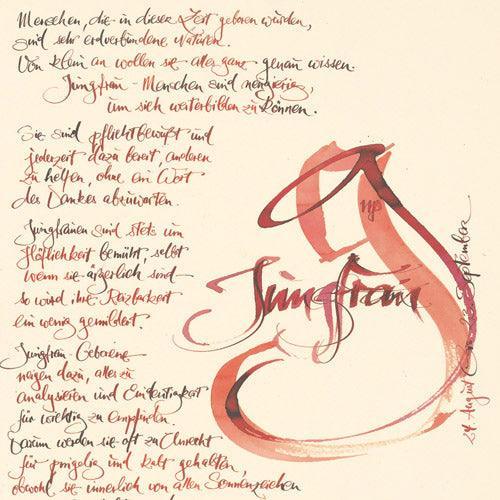 Menschen, die in dieser Zeit geboren wurden,
sind sehr erdverbundene Naturen.
Von klein an wollen sie alles ganz genau wissen.
Jungfrau-Menschen sind neugierig,
um sich weiterbilden zu können.
Sie sind pflichtbewußt und
jederzeit dazu bereit, anderen
zu helfen, ohne ein Wort
des Dankes abzuwarten.
Jungfrauen sind stets um
Höflichkeit bemüht, selbst
wenn sie ärgerlich sind
so wird ihre Reizbarkeit
ein wenig gemildert.
Jungfrau-Geborene
neigen dazu, alles zu
analysieren und Eindeutigkeit
für wichtig zu empfinden.
Darum werden sie oft zu Unrecht
für pingelig und kalt gehalten,
obwohl sie innerlich von allen Sonnenzeichen
Jungfrau
24 August September